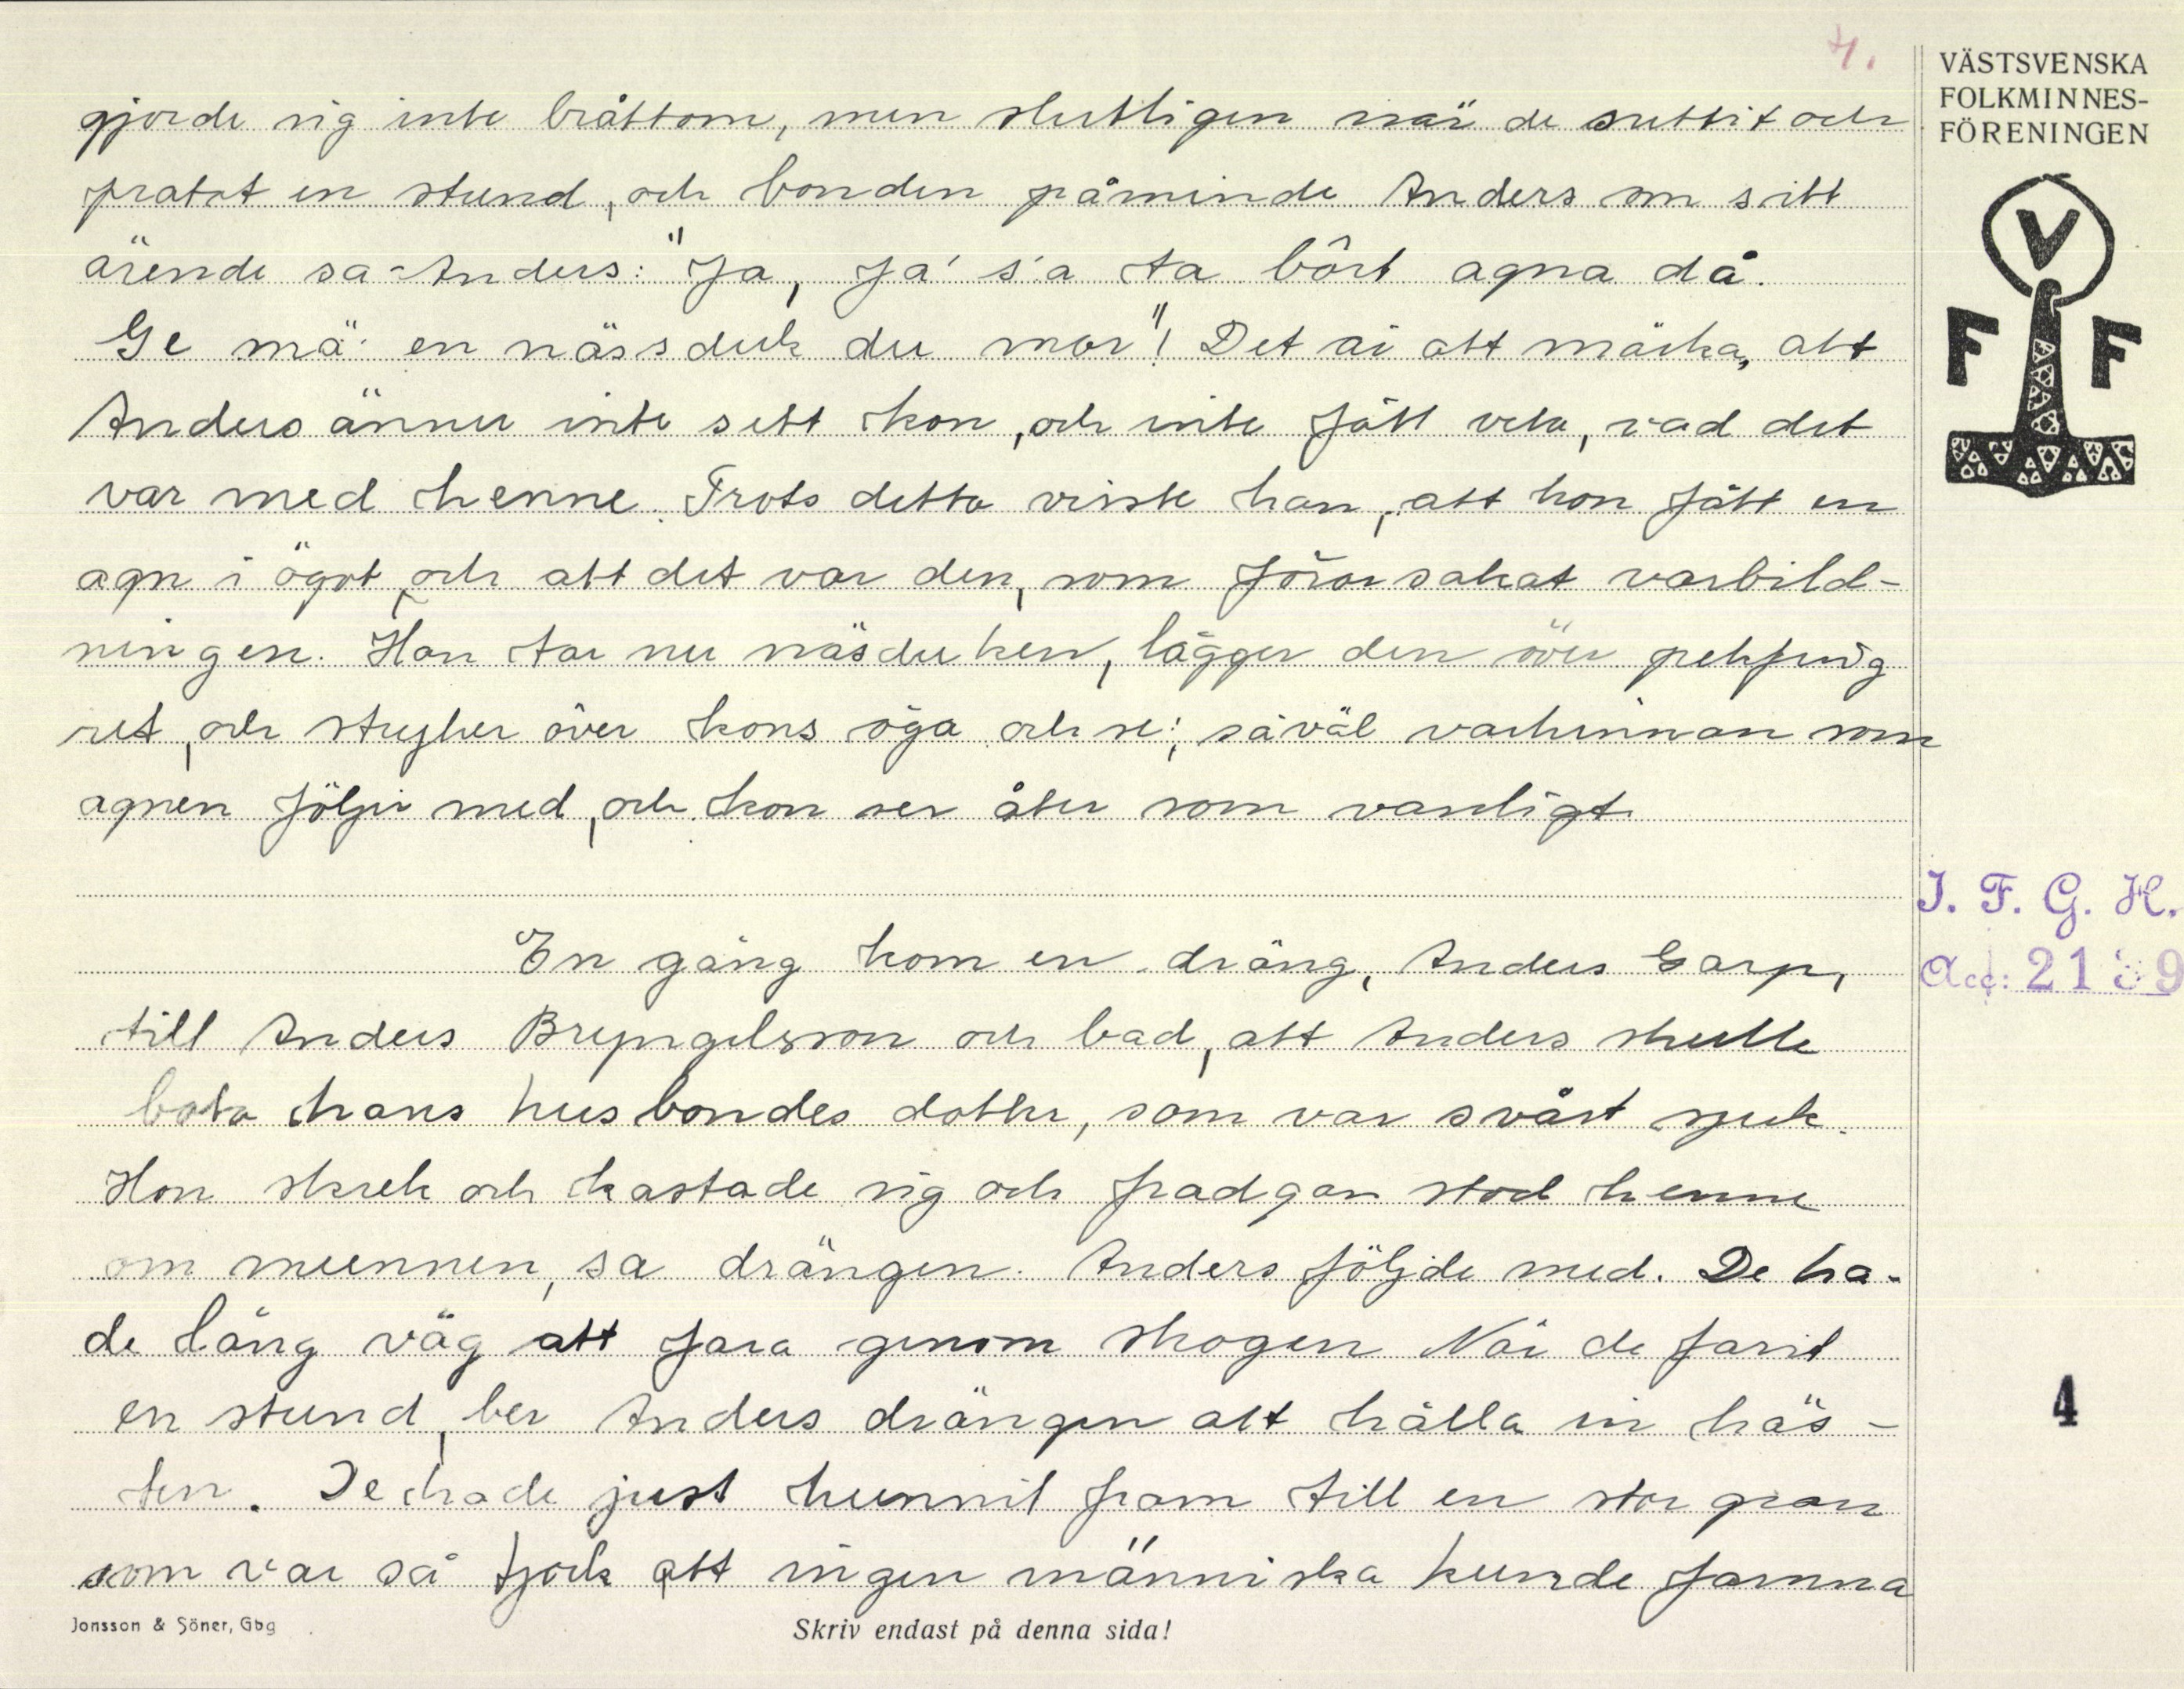 4.
VÄSTSVENSKA
FOLKMINNES-
FÖRENINGEN
V
F F
gjorde sig inte bråttom, men slutligen när de suttit och
pratat en stund, och bonden påminde Anders om sitt
ärende sa Anders: "Ja, ja' s'a ta bôrt agna då.
Ge mä en nässduk du mor"! Det är att märka, att
Anders ännu inte sett kon, och inte fått veta, vad det
var med henne. Trots detta visste han, att kon fått en
agn i ögat, och att det var den, som förorsakat varbild-
ningen. Han tar nu näsduken, lägger den över pekfing
ret, och stryker över kons öga och se; såväl varhinnan som
agnen följer med, och kon ser åter som vanligt.
En gång kom en dräng, Anders Garp,
till Anders Bryngelsson och bad, att Anders skulle
bota hans husbondes dotter, som var svårt sjuk.
Hon skrek och kastade sig och fradgan stod henne
om munnen, sa drängen. Anders följde med. De ha-
de lång väg att fara genom skogen När de farit
en stund, ber Anders drängen att hålla in häs-
ten. De hade just hunnit fram till en stor gran
som var så tjock att ingen människa kunde famna
I. F. G. H.
Acc: 2139
4
Jonsson & Söner, Gbg
Skriv endast på denna sida!